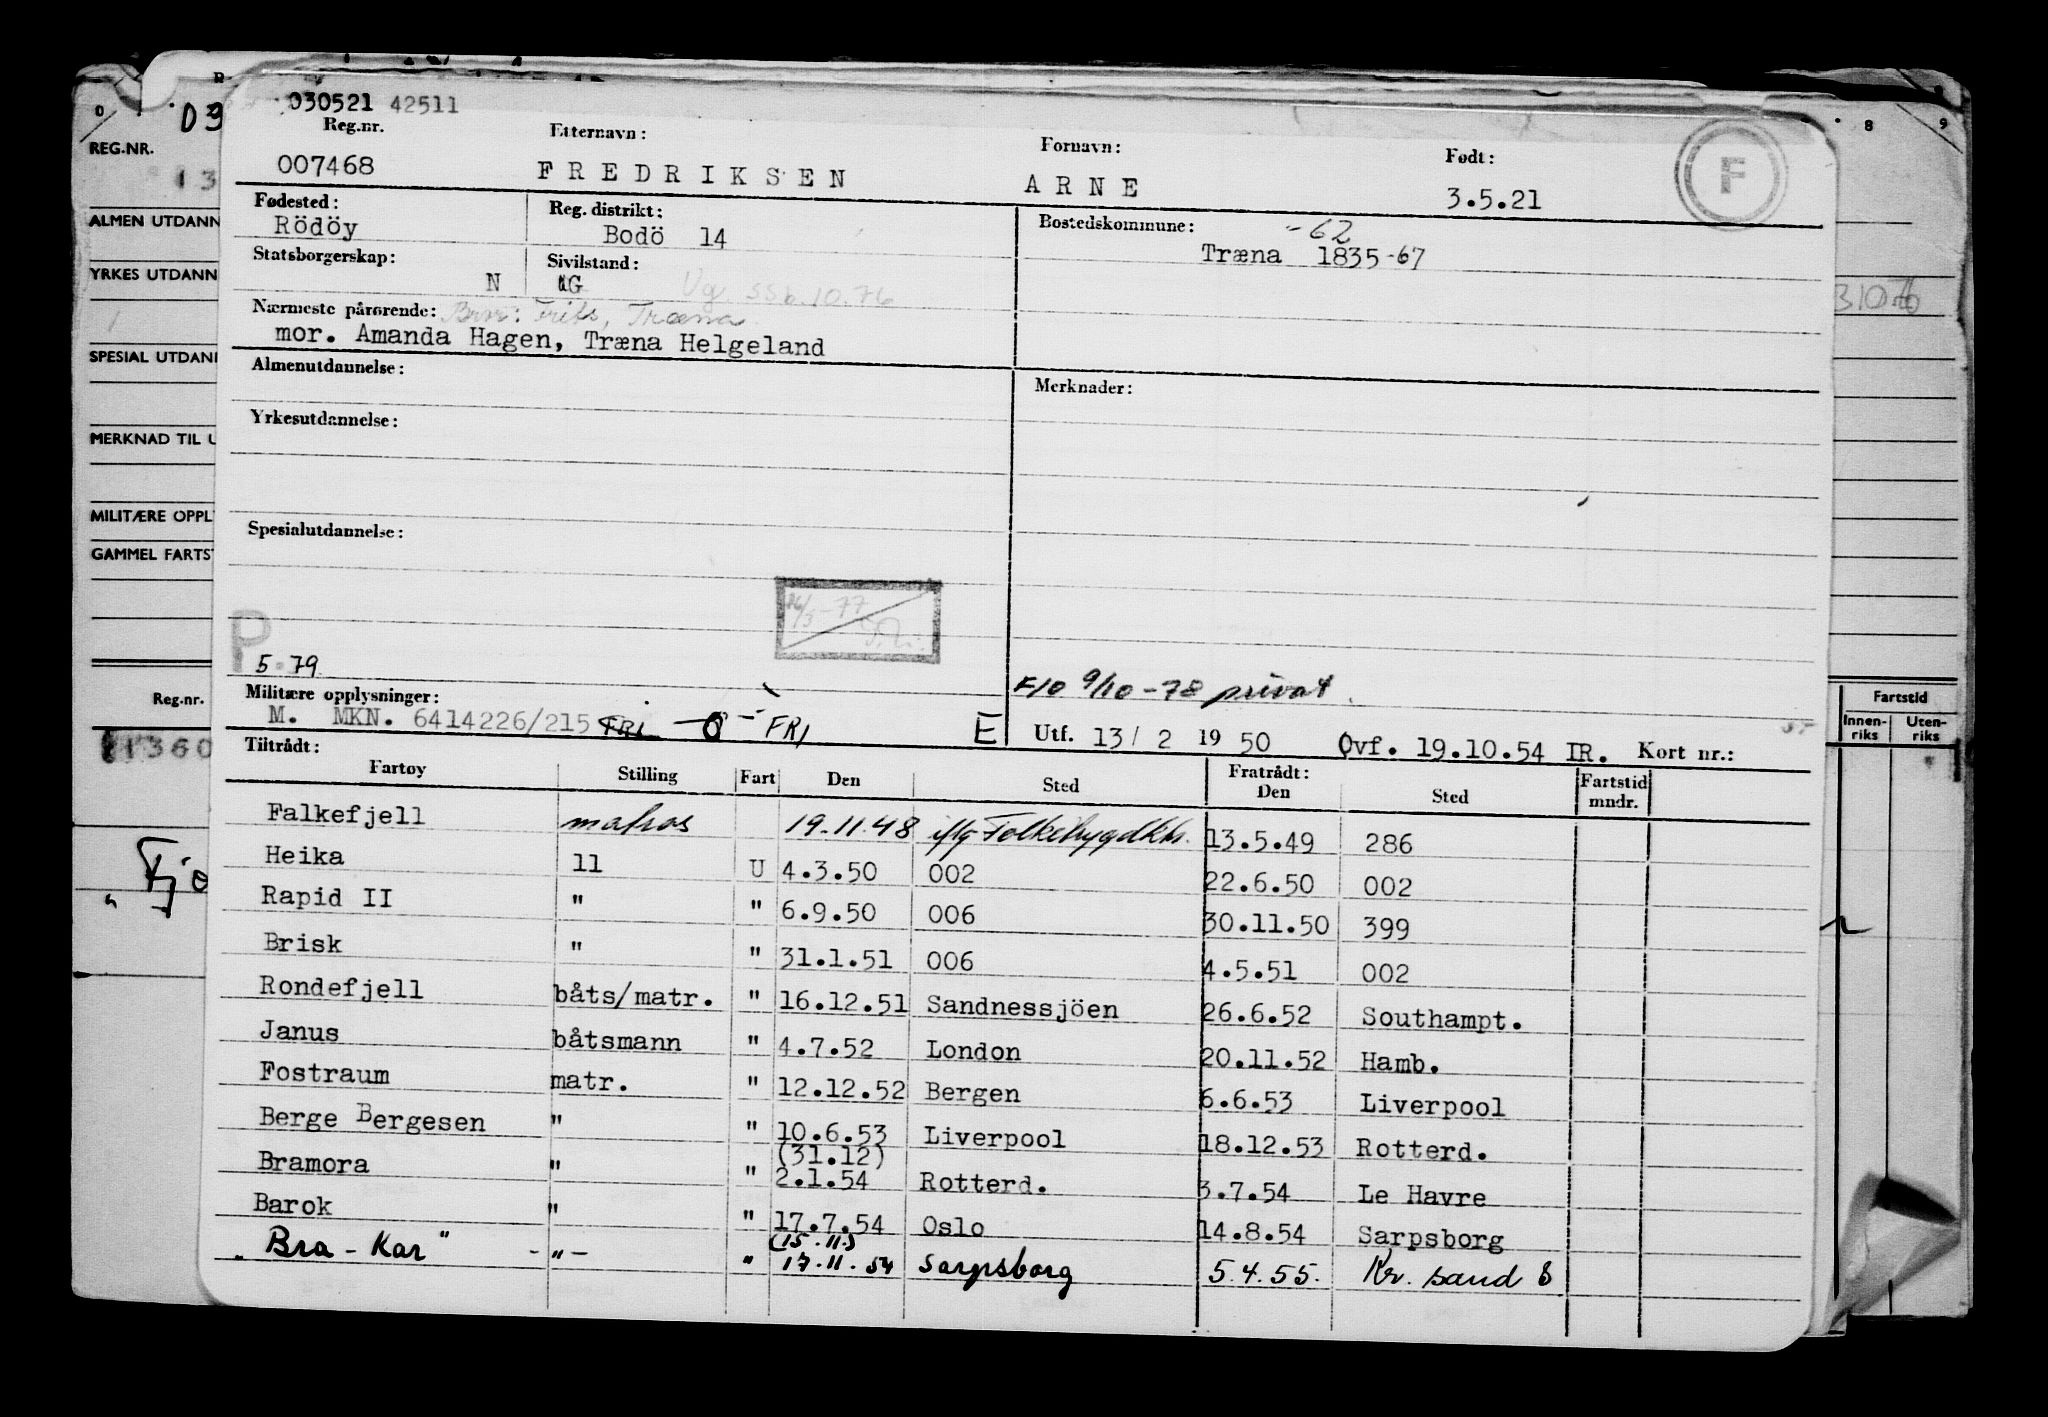 030521 42511
Reg.nr. Etternavn: Fornavn: Født:
007468 FREDRIKSEN ARNE 3.5.21
F
Fødested: Reg. distrikt: Bostedskommune: -62
Rödöy Bodö 14 Træna 1835-67
Statsborgerskap: Sivilstand:
N UG Ug. SSb.10.76
Nærmeste pårørende: Bror: Frits, Træna
mor. Amanda Hagen, Træna Helgeland
Almenutdannelse: Merknader:
Yrkesutdannelse:
Spesialutdannelse:
P. 5.79
F10 9/10-78 privat.
Militære opplysninger:
M. MKN. 6414226/215 FRI FRI E Utf. 13/ 2 19 50 Ovf. 19.10.54 IR. Kort nr.:
Tiltrådt: Fratrådt:
Fartøy Stilling Fart Den Sted Den Sted Fartstid mndr.
Falkefjell matros 19.11.48 iflg Folkebygdkk. 13.5.49 286
Heika 11 U 4.3.50 002 22.6.50 002
Rapid II " " 6.9.50 006 30.11.50 399
Brisk " " 31.1.51 006 4.5.51 002
Rondefjell båts/matr. " 16.12.51 Sandnessjöen 26.6.52 Southampt.
Janus båtsmann " 4.7.52 London 20.11.52 Hamb.
Fostraum matr. " 12.12.52 Bergen 6.6.53 Liverpool
Berge Bergesen " " 10.6.53 Liverpool 18.12.53 Rotterd.
(31.12)
Bramora " " 2.1.54 Rotterd. 3.7.54 Le Havre
Barok " " 17.7.54 Oslo 14.8.54 Sarpsborg
(15.11)
"Bra-Kar" -"- " 17.11.54 Sarpsborg 5.4.55. Kr. sand S
REG.NR.
ALMEN UTDANN
YRKES UTDANN
SPESIAL UTDAN
MERKNAD TIL U
MILITÆRE OPPL
GAMMEL FARTS
Reg.nr.
8 9
Fartstid
Innen-riks Uten-riks